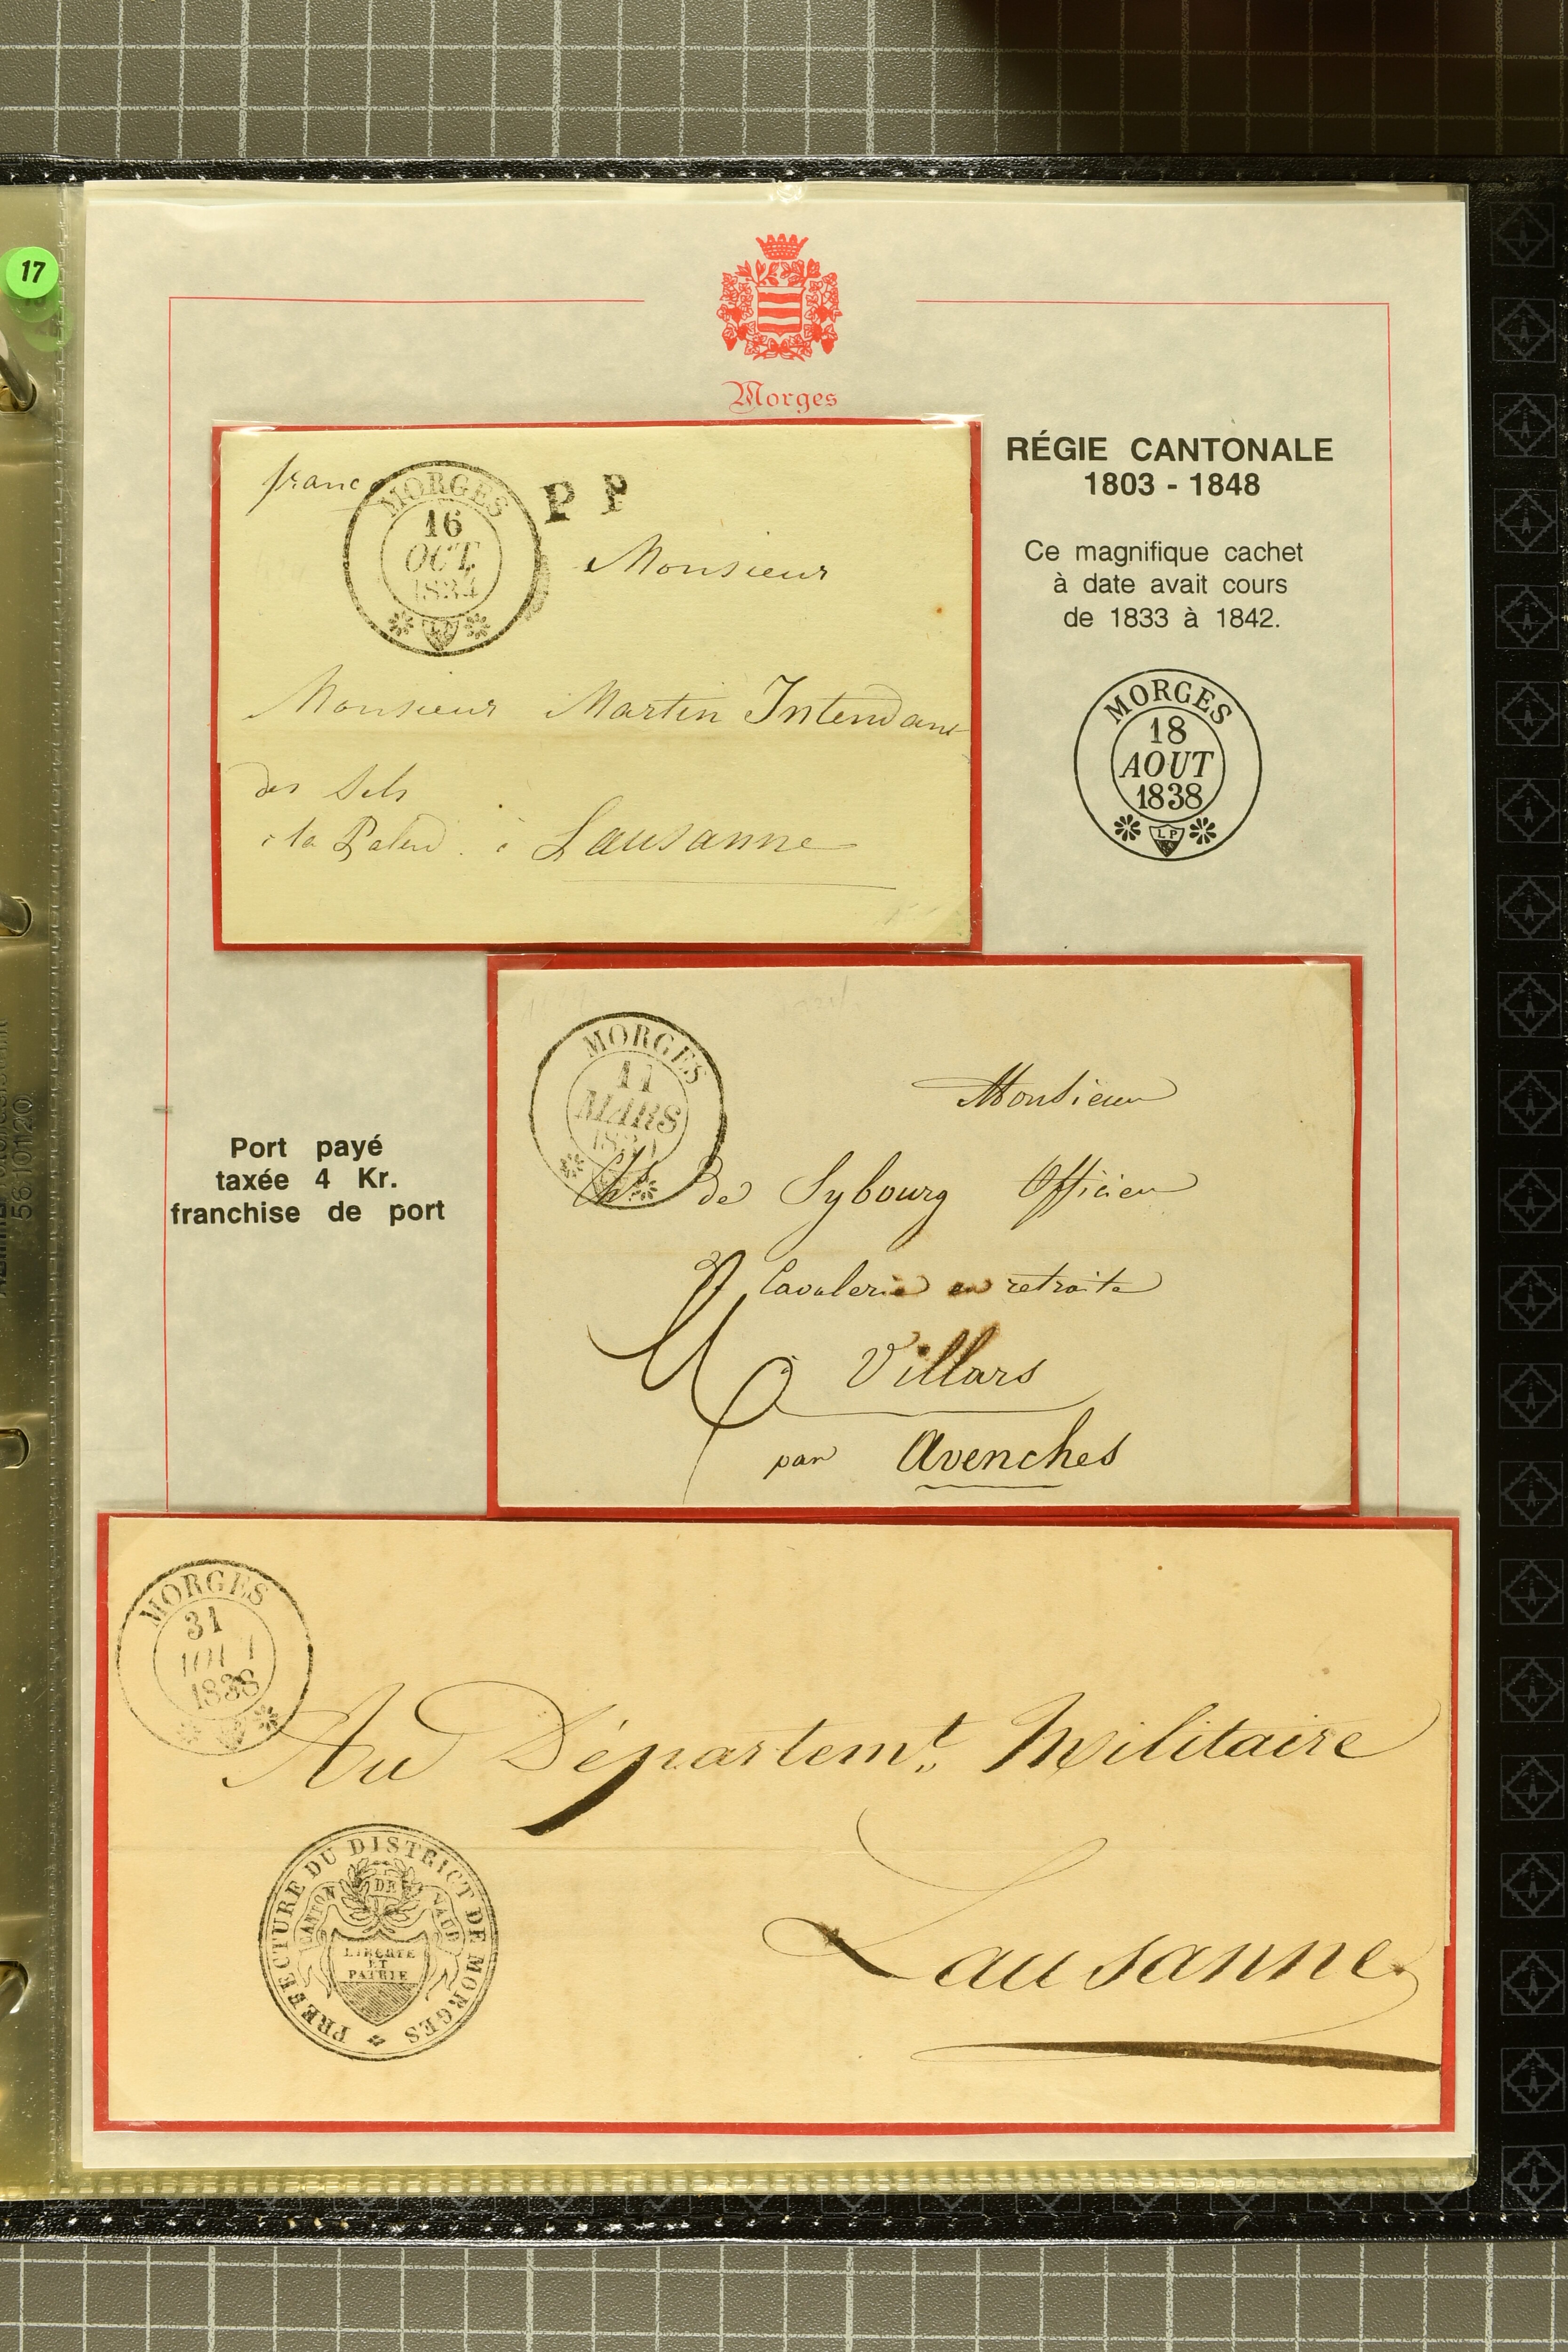 17
Morges
RÉGIE CANTONALE
1803 - 1848
Ce magnifique cachet
à date avait cours
de 1833 à 1842.
MORGES
18
AOUT
1838
LP
franco
MORGES
16
OCT.
1834
P P
Monsieur
Monsieur Martin Intendant
des Sels
à la Palud à Lausanne
Port payé
taxée 4 Kr.
franchise de port
MORGES
11
MARS
Monsieur
Chs de Sybourg Officier
de Cavalerie en retraite
4
Villars
par Avenches
MORGES
31
1838
Au Départemt. Militaire
Lausanne
PREFECTURE DU DISTRICT DE MORGES
CANTON DE VAUD
LIBERTE
ET
PATRIE
56.101120